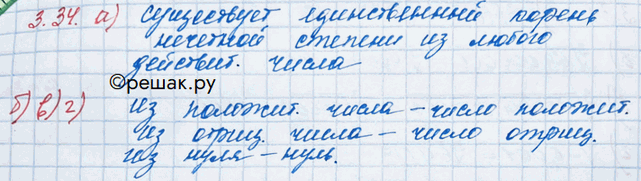 3.34. а) Существует единственный корень
нечетной степени из любого
действит. числа
©решак.ру
б) в) г) из положит. числа – число положит.
из отриц. числа – число отриц.
из нуля – нуль.